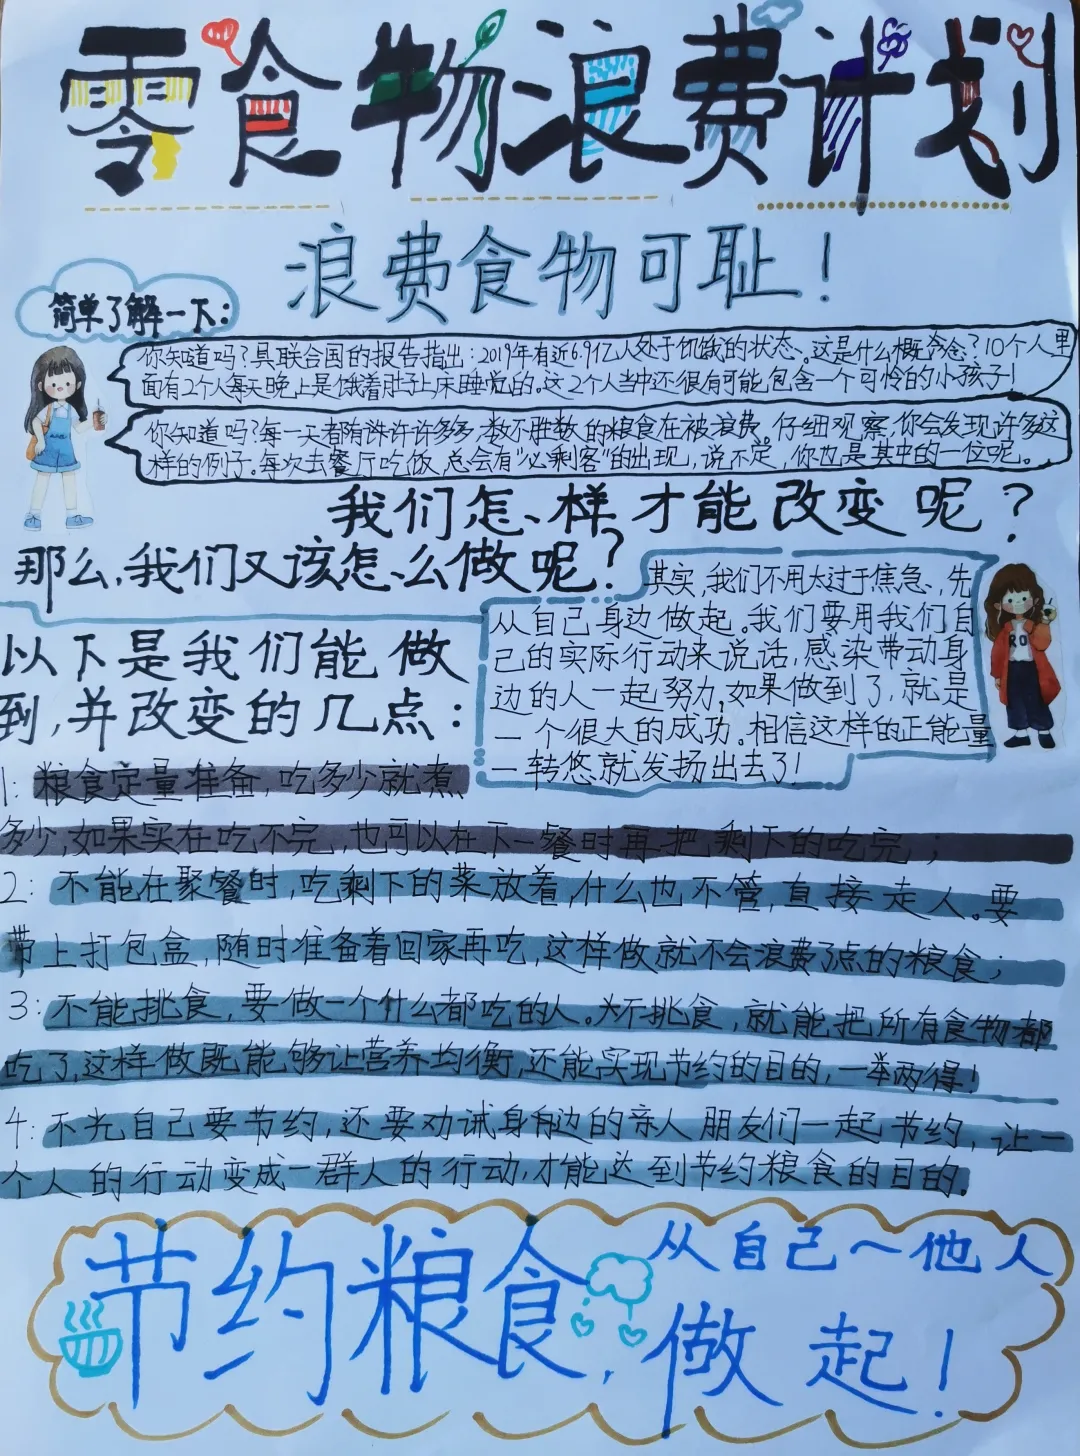 零食物浪费计划
浪费食物可耻！
简单了解一下：
你知道吗？具联合国的报告指出：2019年有近6.9亿人处于饥饿的状态。这是什么概念？10个人里
面有2个人每天晚上是饿着肚子上床睡觉的。这2个人当中还很有可能包含一个可怜的小孩子！
你知道吗？每一天都有许许多多，数不胜数的粮食在被浪费。仔细观察，你会发现许多这
样的例子。每次去餐厅吃饭，总会有“必剩客”的出现，说不定，你也是其中的一位呢。
我们怎样才能改变呢？
那么，我们又该怎么做呢？
其实，我们不用太过于焦急，先
从自己身边做起。我们要用我们自
己的实际行动来说话，感染带动身
边的人一起努力，如果做到了，就是
一个很大的成功。相信这样的正能量
一转悠就发扬出去了！
以下是我们能做
到，并改变的几点：
1：粮食定量准备，吃多少就煮
多少，如果实在吃不完，也可以在下一餐时再把剩下的吃完；
2：不能在聚餐时，吃剩下的菜放着，什么也不管，直接走人。要
带上打包盒，随时准备着回家再吃，这样做就不会浪费了点的粮食；
3：不能挑食，要做一个什么都吃的人。不挑食，就能把所有食物都
吃了，这样做既能够让营养均衡，还能实现节约的目的，一举两得！
4：不光自己要节约，还要劝诫身边的亲人朋友们一起节约，让一
个人的行动变成一群人的行动，才能达到节约粮食的目的。
节约粮食，从自己～他人
做起！